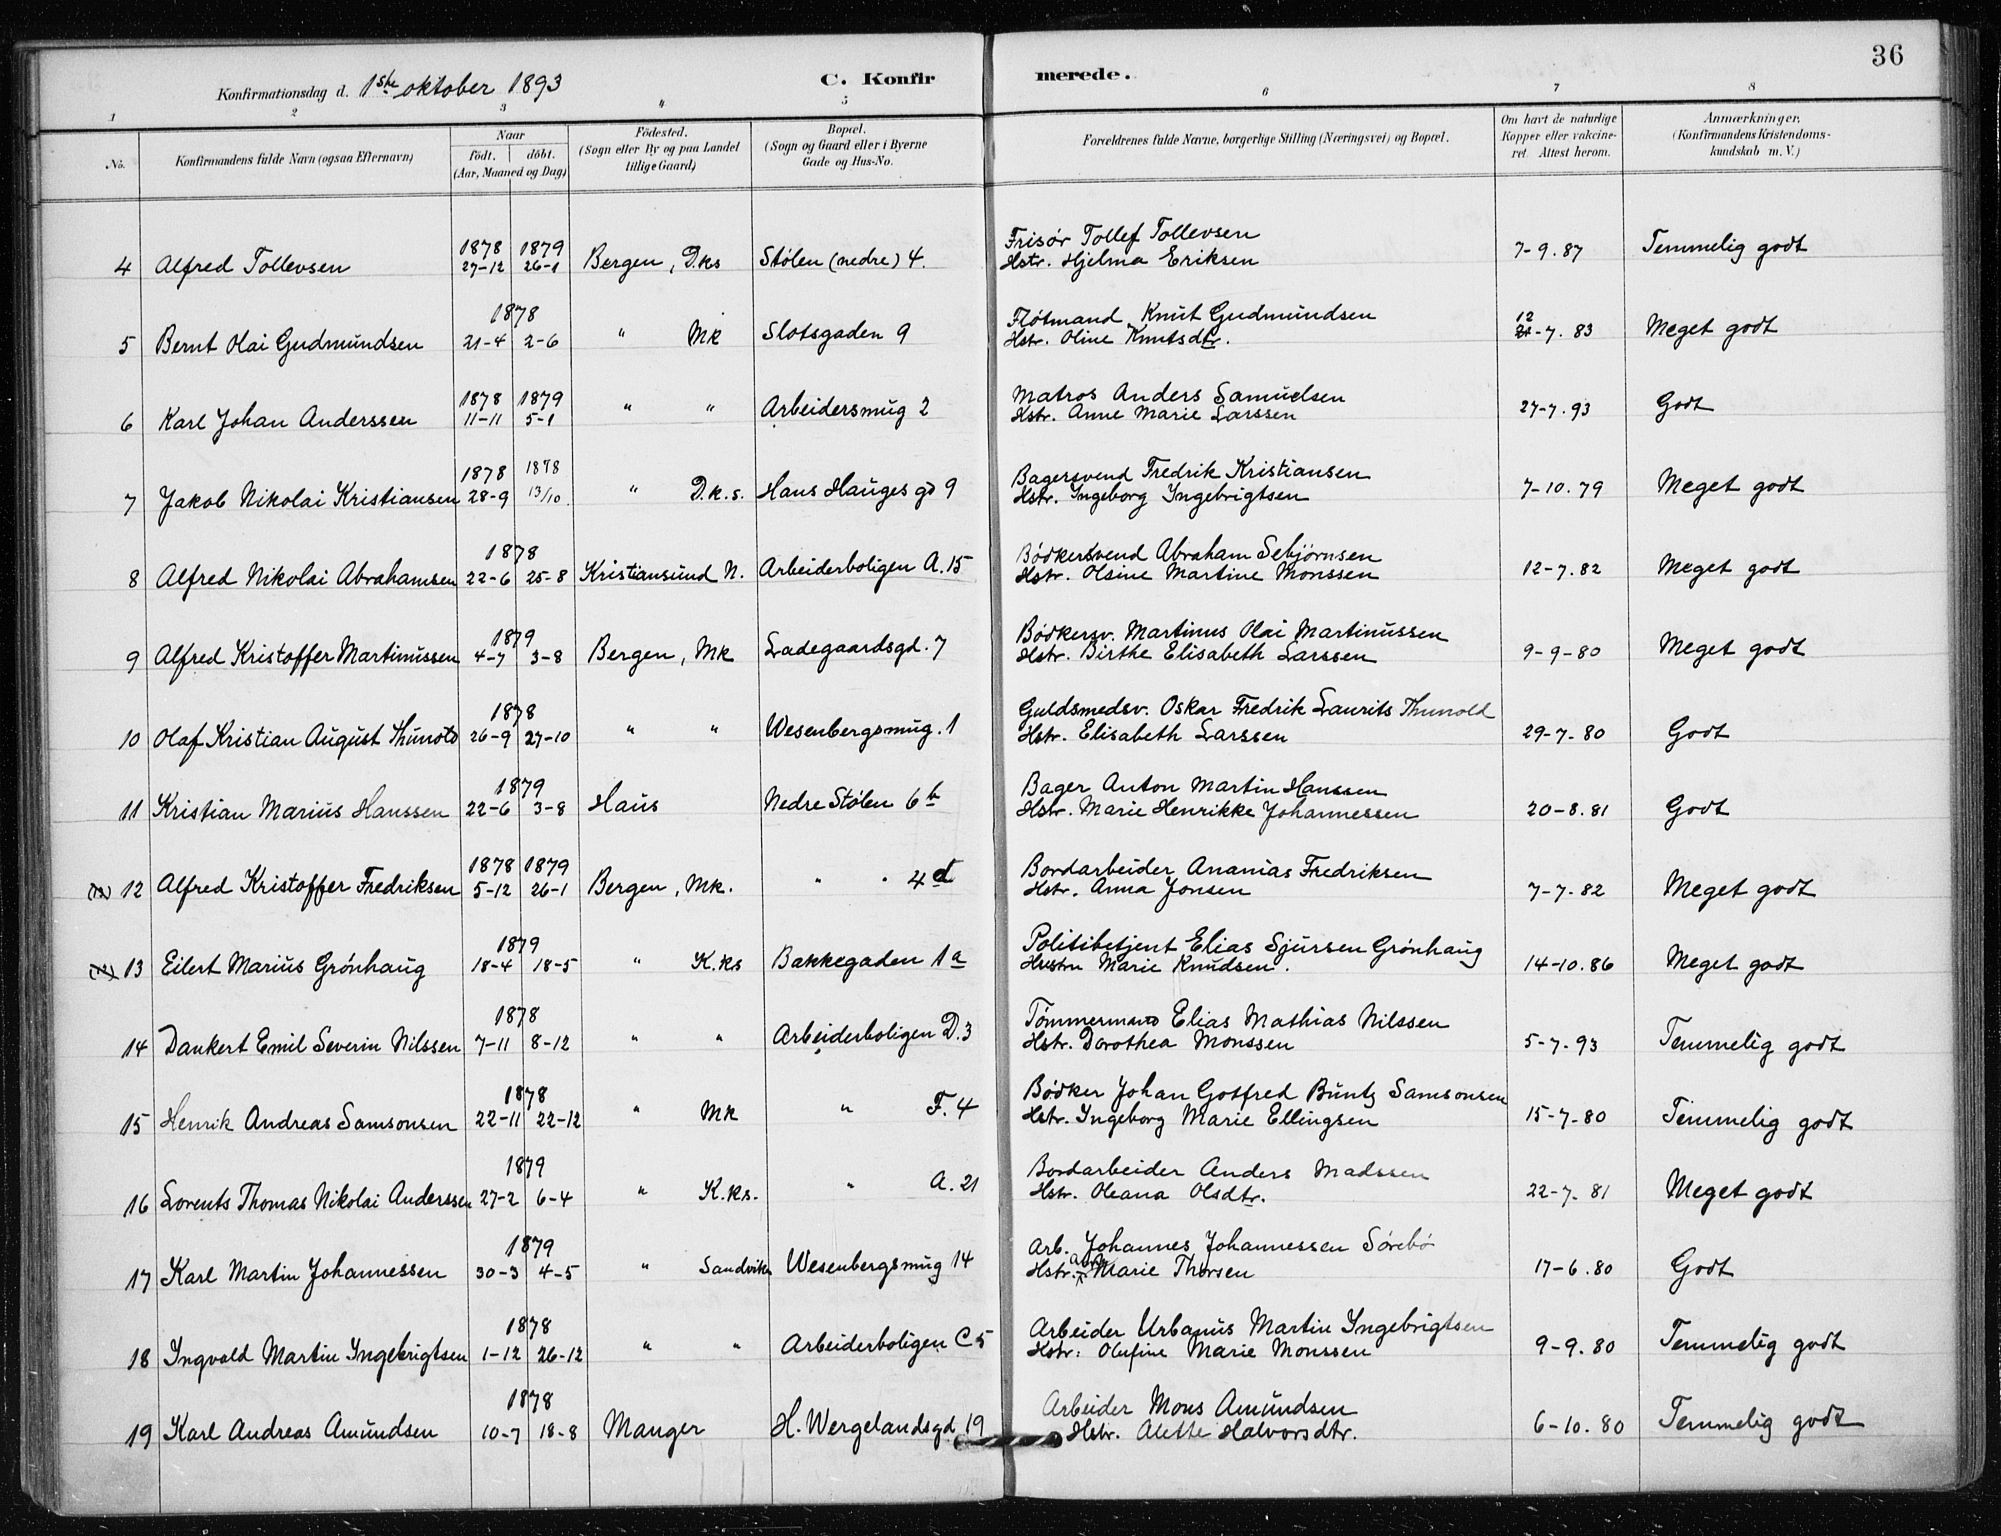 36
Konfirmationsdag d. 1ste oktober 1893
C. Konfir merede.
1 2 3 " 5 6 7 8
No. Konfirmandens fulde Navn (ogsaa Efternavn) Naar födt. döbt. (Aar, Maaned og Dag) Födested. (Sogn eller By og paa Landet tillige Gaard) Bopæl. (Sogn og Gaard eller i Byerne Gade og Hus-No. Forældrenes fulde Navne, borgerlige Stilling (Næringsvei) og Bopæl. Om havt de naturlige Kopper eller vakcineret. Attest herom. Anmærkninger. (Konfirmandens Kristendomskundskab m. V.)
4 Alfred Tollevsen 1878 27-12 1879 26-1 Bergen, D.ks Stølen (nedre) 4. Frisør Tollef Tollevsen
Hstr. Hjelma Eriksen 7-9.87 Temmelig godt
5 Bernt Olai Gudmundsen 1878 21-4 2-6 " Mk Slotsgaden 9 Fløtmand Knut Gudmundsen
Hstr. Oline Knutsdtr. 12 21-7.83 Meget godt
6 Karl Johan Anderssen 1878 11-11 1879 5-1 " " Arbeidersmug 2 Matros Anders Samuelsen
Hstr. Anne Marie Larssen 27-7.93 Godt
7 Jakob Nikolai Kristiansen 1878 28-9 1878 13/10 " D.k.s. Hans Hauges gd 9 Bagersvend Fredrik Kristiansen
Hstr. Ingeborg Ingebrigtsen 7-10.79 Meget godt
8 Alfred Nikolai Abrahamsen 1878 22-6 25-8 Kristiansund N. Arbeiderboligen A.15 Bødkersvend Abraham Sebjørnsen
Hstr. Olsine Martine Monssen 12-7.82 Meget godt
9 Alfred Kristoffer Martinussen 1879 4-7 3-8 Bergen, Mk Ladegaardsgd. 7 Bødkersv. Martinus Olai Martinussen
Hstr. Birthe Elisabeth Larssen 9-9-80 Meget godt
10 Olaf Kristian August Thunold 1878 26-9 27-10 " " Wesenbergsmug. 1 Guldsmedsv. Oskar Fredrik Laurits Thunold
Hstr. Elisabeth Larssen 29-7-80 Godt
11 Kristian Marius Hanssen 1879 22-6 3-8 Haus Nedre Stølen 6b Bager Anton Martin Hanssen
Hstr. Marie Henrikke Johannessen 20-8.81 Godt
12 Alfred Kristoffer Fredriksen 1878 5-12 1879 26-1 Bergen, Mk. " " 4d Bordarbeider Ananias Fredriksen
Hstr. Anna Jonsen 7-7.82 Meget godt
13 Eilert Marius Grönhaug 1879 18-4 18-5 " K.ks Bakkegaden 1a Politibetjent Elias Sjursen Grönhaug
Hustru Marie Knudsen. 14-10.86 Meget godt
14 Dankert Emil Severin Nilssen 1878 7-11 8-12 " " Arbeiderboligen D.3 Tömmermand Elias Mathias Nilssen
Hstr. Dorothea Monssen 5-7-93 Temmelig godt
15 Henrik Andreas Samsonsen 1878 22-11 22-12 " Mk " F.4 Bødker Johan Gotfred Buntz Samsonsen
Hstr. Ingeborg Marie Ellingsen 15-7-80 Temmelig godt
16 Lorents Thomas Nikolai Anderssen 1879 27-2 6-4 " K.ks. " A.21 Bordarbeider Anders Madssen
Hstr. Oleana Olsdtr. 22-7.81 Meget godt
17 Karl Martin Johannessen 1879 30-3 4-5 " Sandviken Wesenbergsmug 14 Arb. Johannes Johannessen Sørebø
Hstr. Marie Thorsen 17-6.80 Godt
18 Ingvald Martin Ingebrigtsen 1878 1-12 26-12 " " Arbeiderboligen C 5 Arbeider Urbanus Martin Ingebrigtsen
Hstr. Olufine Marie Monssen 9-9.80 Temmelig godt
19 Karl Andreas Amundsen 1878 10-7 18-8 Manger H. Wergelandsgd 19 Arbeider Mons Amundsen
Hstr. Alette Halvorsdtr. 6-10.80 Temmelig godt